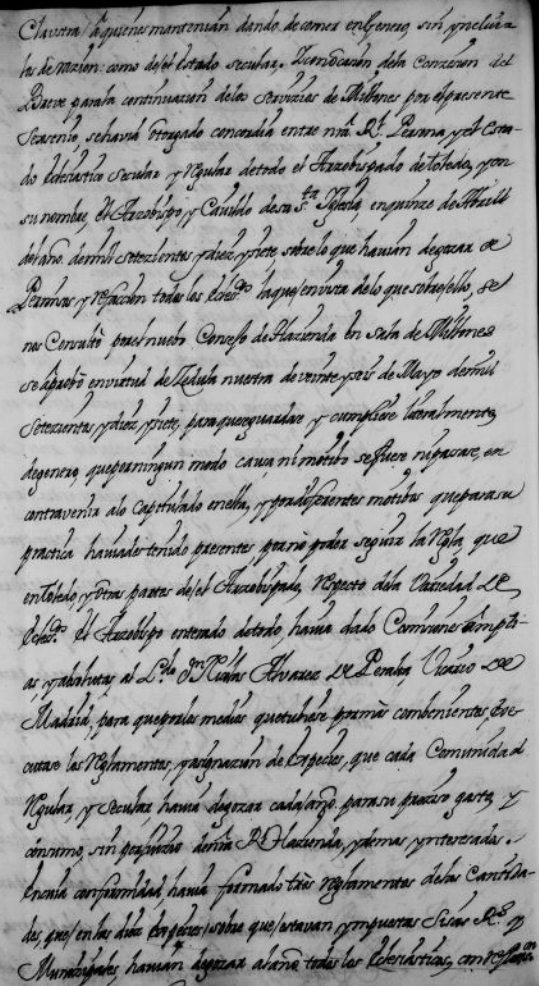 Clausura, a quienes mantenian dando de comer en Genero, sin yncluir a
los de razion: como del el estado secular. Y con ocasion dela Conzesion del
Breve para la continuazion delos servizios de Millones por el presente
sexsenio, se havia otorgado concordia entre nrâ Rl. Persona y el Esta-
do Eclesiastico secular y regular de todo el Arzobispado de toledo, y en
su nombre, el Arzobispo y Cavildo de su sta. Iglesia, en quinze de Abrill
del año de mill setezientos y diez y siete, sobre lo que havian de gozar de
Refaccion todos los Eclesos. la que en vista de lo que sobre ello, se
nos Consultò por el nuebo Consejo de Hazienda en sala de Millones
se aprobò en virtud de Zedula nuestra de veinte y seis de Mayo de mill
setezientos y diez y siete, para que se guardase y cumpliese literalmente,
de genero, que por ningun modo causa ni motibo se fuere ni pasase, en
contravenir alo capitulado en ella, y por diferentes motibos que para su
practica haviades tenido presentes por nò poder seguir la regla, que
en Toledo, y otras partes de el Arzobispado, respecto dela Variedad de
Ecleos. el Arzobispo enterado de todo, havia dado Comisiones ampli-
as y absolutas al Lzdo. Dn. Nicolas Alvarez de Peralta, Vicario de
Madrid, para que por los medios que tubiese por mas combenientes, exe-
cutase los reglamentos, y asignazion de Especies, que cada Comunidad
regular y secular havia de gozar cada año para su preziso gasto, y
consumo, sin perjuizio de nra Rl. Hazienda, y demas ynteresados.
En cuia conformidad, havia formado tres reglamentos delas Cantida-
des, que en las diez Especies sobre que estavan ympuestas Sisas Rs. y
Munizipales, havian de gozar al año todos los Eclesiasticos, con